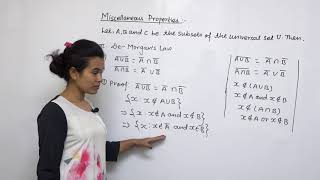 Miscellaneous Properties:-
Let, A, B and C be the Subsets of the universal set U. Then.
De-Morgan's Law
A̅∪̅B̅ = A̅ ∩ B̅
A̅∩̅B̅ = A̅ ∪ B̅
① Proof A̅∪̅B̅ = A̅ ∩ B̅
{x : x ∉ A∪B}
⇒ {x : x ∉ A and x ∉ B}
⇒ {x : x ∈ A̅ and x ∈ B̅}
A̅∪̅B̅ = A̅ ∩ B̅
A̅∩̅B̅ = A̅ ∪ B̅
x ∉ (A∪B)
x ∉ A and x ∉ B
x ∉ (A∩B)
x ∉ A or x ∉ B